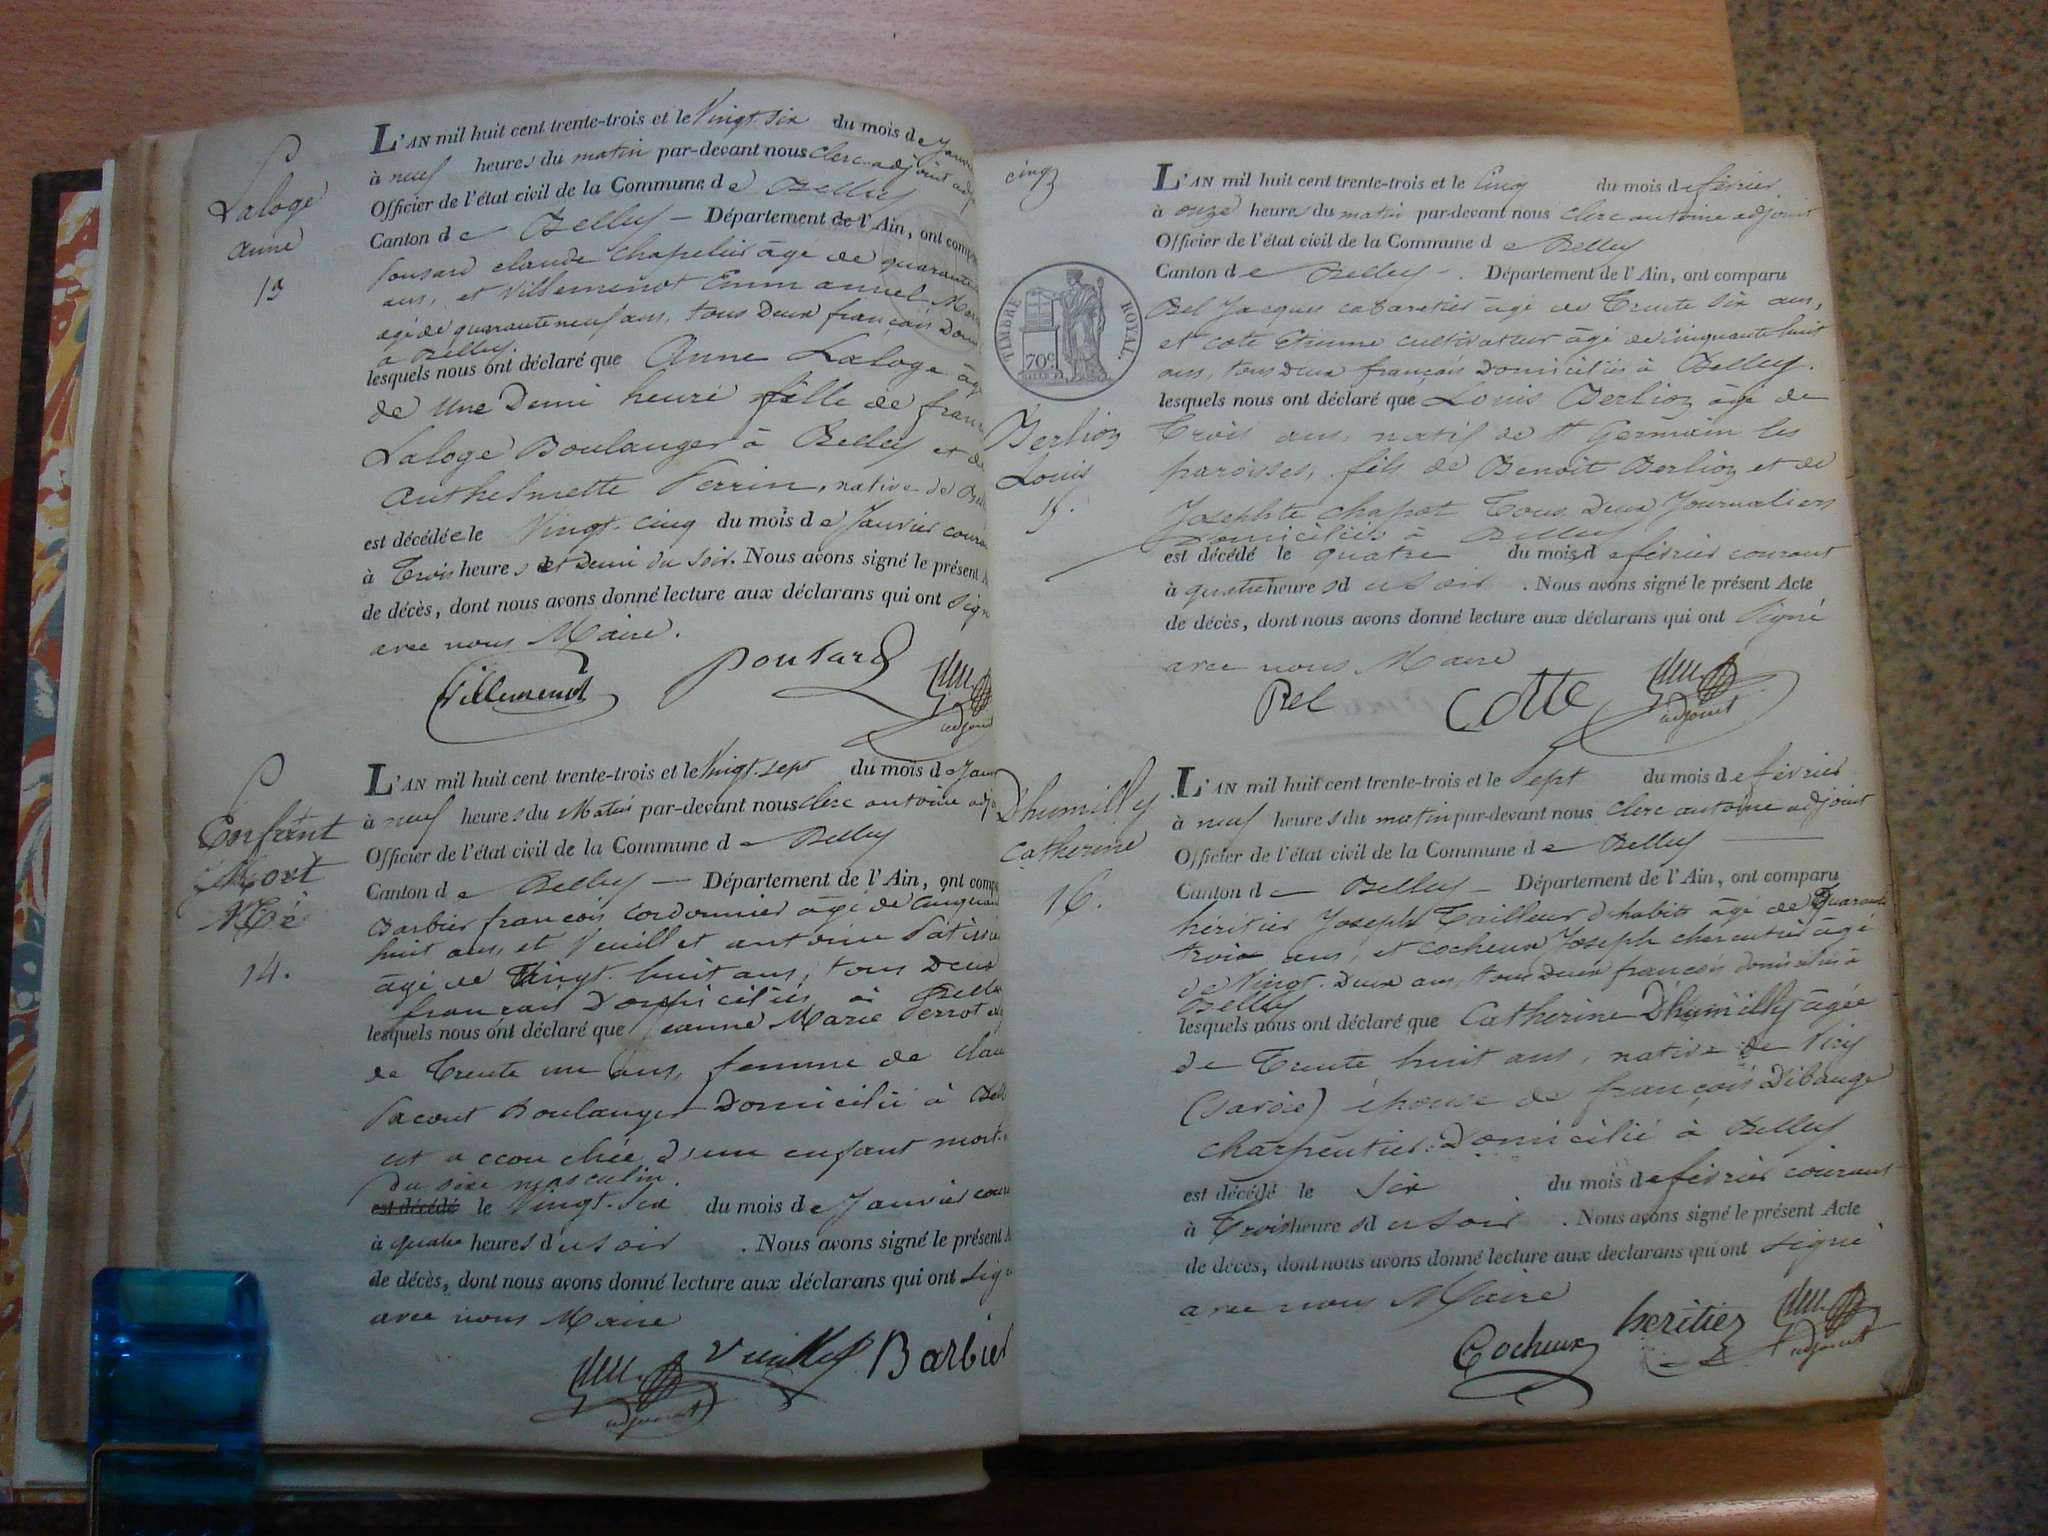 Laloge
anne
13
L'AN mil huit cent trente-trois et le Vingt-six du mois de Janvi
à neuf heures du matin par-devant nous clerc adjoint
Officier de l'état civil de la Commune de Belley
Canton de Belley — Département de l'Ain, ont compa
claude chapelier âgé de quarante
ans, et Villemenot Emmanuel
agé de quarante neuf ans, tous deux français Dom
a Belley.
lesquels nous ont déclaré que Anne Laloge âg
de Une Demi heure fille de fran
Laloge Boulanger à Belley et de
Anthelmette Perrin, native de
est décédée le Vingt-cinq du mois de Janvier coura
à Trois heures et Demi du soir. Nous avons signé le présent A
de décès, dont nous avons donné lecture aux déclarans qui ont sign
avec nous Maire.
Villemenot
adjoint
Enfant
Mort
Né
14.
L'AN mil huit cent trente-trois et le Vingt-sept du mois de Janv
à neuf heures du Matin par-devant nous clerc antoine adjo
Officier de l'état civil de la Commune de Belley
Canton de Belley — Département de l'Ain, ont compa
Barbier françois cordonnier âgé de Cinquante
huit ans, et Veuillet antoine Patissier
âgé de Vingt-huit ans, tous Deux
français Domiciliés à Belley
lesquels nous ont déclaré que Jeanne Marie Perrot
de Trente un ans, femme de clau
Pacout Boulanger Domicilié à Bell
est accouchée d'un enfant mort-n
du sexe masculin.
est décédé le Vingt-six du mois de Janvier coura
à quatre heures du soir . Nous avons signé le présent A
de décès, dont nous avons donné lecture aux déclarans qui ont sign
avec nous Maire
Barbier
adjoint
cinq
TIMBRE ROYAL.
70c.
L'AN mil huit cent trente-trois et le Cinq du mois de février
à onze heures du matin par-devant nous clerc antoine adjoint
Officier de l'état civil de la Commune de Belley
Canton de Belley — . Département de l'Ain, ont comparu
Bel Jacques cabaretier âgé de Trente six ans,
et cote Etienne cultivateur âgé de Cinquante huit
ans, tous deux français Domiciliés à Belley.
lesquels nous ont déclaré que Louis Berlioz âgé de
Berlioz
Louis
15.
Trois ans, natif de St Germain les
paroisses, fils de Benoît Berlioz et de
Josephte chapot Tous Deux Journaliers
Domiciliés à Belley
est décédé le quatre du mois de février courant
à quatre heures du soir . Nous avons signé le présent Acte
de décès, dont nous avons donné lecture aux déclarans qui ont signé
avec nous Maire
Bel
Cotte
adjoint
D'humilly
Catherine
16.
L'AN mil huit cent trente-trois et le Sept du mois de février
à neuf heures du matin par-devant nous clerc antoine adjoint
Officier de l'état civil de la Commune de Belley
Canton de Belley — Département de l'Ain, ont comparu
héritier Joseph Tailleur d'habits âgé de Quarante
trois ans, et cocheux Joseph charcutier âgé
de Vingt-Deux ans, tous deux français domiciliés à
Belley
lesquels nous ont déclaré que Catherine D'humilly âgée
de Trente huit ans, native de Viry
(Savoie) épouse de françois Dibange
charpentier Domicilié à Belley
est décédé le Six du mois de février courant
à Trois heures du soir . Nous avons signé le présent Acte
de décès, dont nous avons donné lecture aux déclarans qui ont signé
avec nous Maire
Cocheux
heritier
adjoint